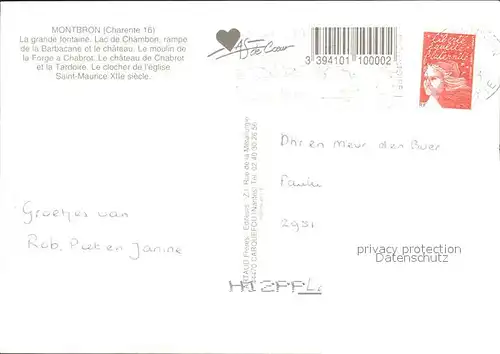 MONTBRON (Charente 16)
La grande fontaine. Lac de Chambon, rampe
de la Barbacane et le château. Le moulin de
la Forge à Chabrot. Le château de Chabrot
et la Tardoire. Le clocher de l'église
Saint-Maurice XIIe siècle.
As de Cœur
3 394101 100002
ARTAUD Frères - Editeurs - Z.I. Rue de la Métallurgie
44470 CARQUEFOU (Nantes) Tél. 02 40 30 26 56
Dhr en Mevr den Boer
2951
Groetjes van
Rob, Piet en Janine
privacy protection
Datenschutz